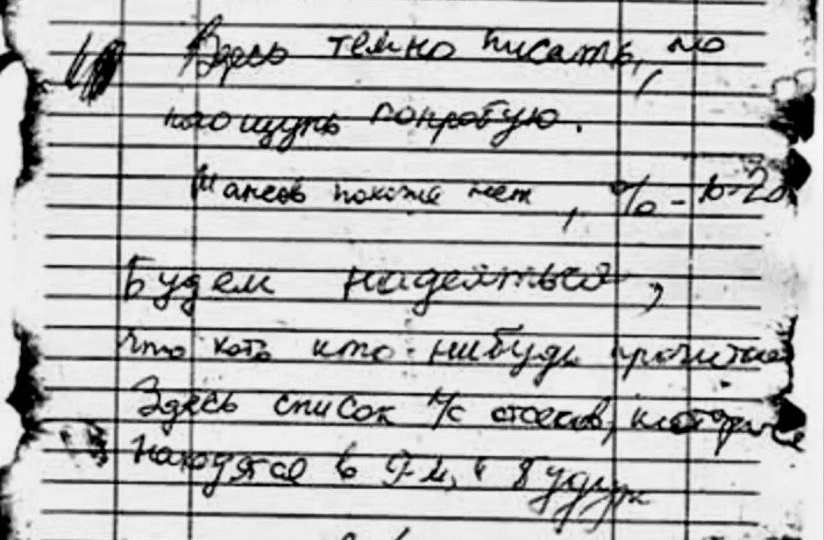 Здесь темно писать, но
наощупь попробую.
Шансов похоже нет, % - 10-20
Будем надеяться,
что хоть кто-нибудь прочитает
Здесь список л/с отсеков, которые
находятся в 9-м, и будут